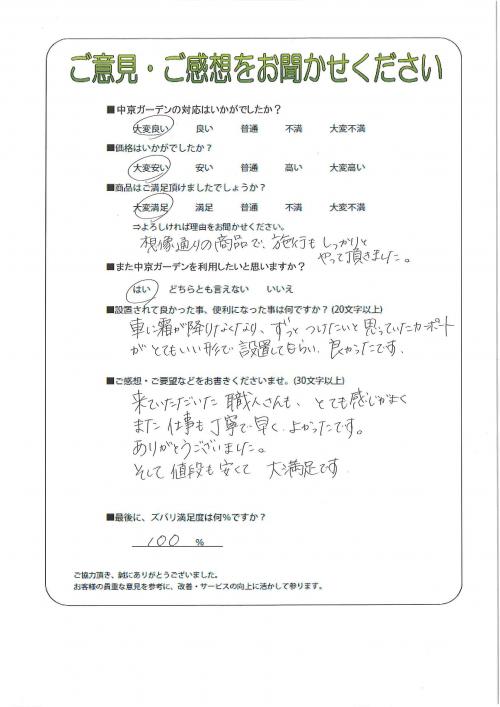 ご意見・ご感想をお聞かせください
■中京ガーデンの対応はいかがでしたか？
大変良い 良い 普通 不満 大変不満
■価格はいかがでしたか？
大変安い 安い 普通 高い 大変高い
■商品はご満足頂けましたでしょうか？
大変満足 満足 普通 不満 大変不満
⇒よろしければ理由をお聞かせください。
想像通りの商品で、施行も しっかりと
やって頂きました。
■また中京ガーデンを利用したいと思いますか？
はい どちらとも言えない いいえ
■設置されて良かった事、便利になった事は何ですか？(20文字以上)
車に霜が降りなくなり、ずっとつけたいと思っていたカーポート
がとてもいい形で設置してもらい、良かったです、
■ご感想・ご要望などをお書きくださいませ。(30文字以上)
来ていただいた 職人さんも、とても感じがよく
また 仕事も丁寧で早く、よかったです。
ありがとうございました。
そして 値段も安くて 大満足です
■最後に、ズバリ満足度は何%ですか？
100 %
ご協力頂き、誠にありがとうございました。
お客様の貴重な意見を参考に、改善・サービスの向上に活かして参ります。